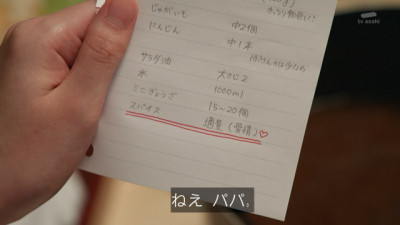 tv asahi
じゃがいも 中2個
にんじん 中1本
サラダ油 大さじ2
水 1000ml
ミニぎょうざ 15~20個
スパイス 適量(習積)♡
ねえ パパ。